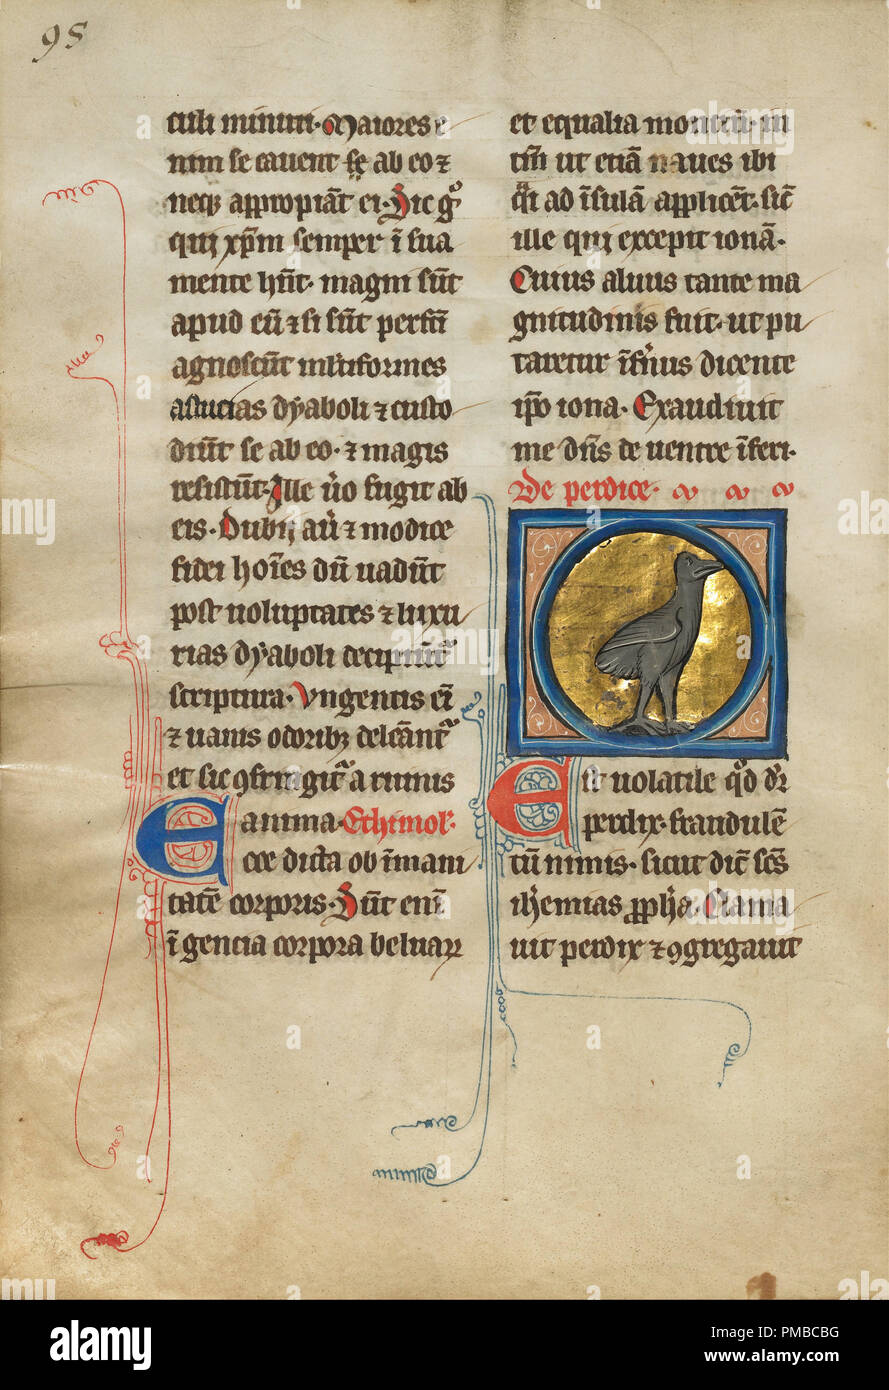 95
culi minuti. Maiores e
nim se cauent se ab eo ⁊
neqꝫ appropiāt ei. Sic gͦ
qui xp̄m semper ī sua
mente hn̄t. magni sūt
apud eū ⁊ si sūt perfcī
agnoscūt multiformes
astucias dyaboli ⁊ custo
diūt se ab eo. ⁊ magis
resistūt. Ille u̾o fugit ab
eis. Dubij au̾ ⁊ modice
fidei hoīes dū uadūt
post uoluptates ⁊ luxu
rias dyaboli decipiūt᷑
scriptura. Vngentis ei
⁊ uariis odoribꝫ delcānt᷑
et sic ꝯfringit᷑ a ruinis
anima. Ethimol.
Cete dicta ob īmani
tatē corporis. Sūt eni
īgencia corpora beluaꝝ
et equalia montiū. in
tm̄ ut etiā naues ibi
q̄i ad īsulā applicēt. sic̄
ille qui excepit ionā.
Cuius aluus tante ma
gnitudinis fuit. ut pu
taretur īfn̾us dicente
ip̄o iona. Exaudiuit
me dn̄s de uentre īferi.
De perdice.
Est uolatile qd̾ dr̄
perdix. fraudulē
tū nimis. sicut dic̄ sc̄s
ih̾emias ꝓph̄a. Clama
uit perdix ⁊ ꝯgregauit
alamy
Image ID: PMBCBG
www.alamy.com